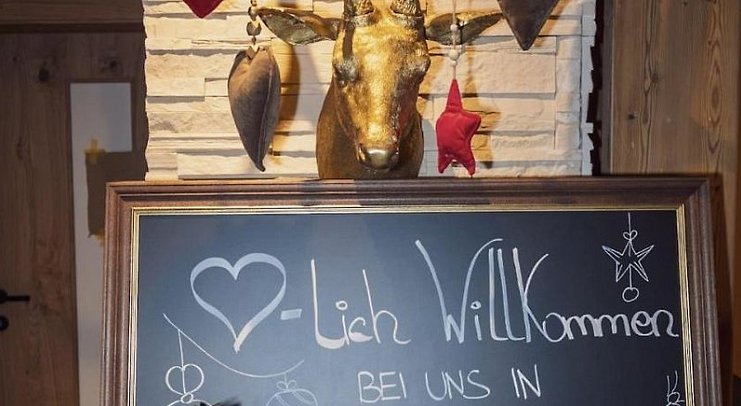 ♡-lich Willkommen
BEI UNS IN